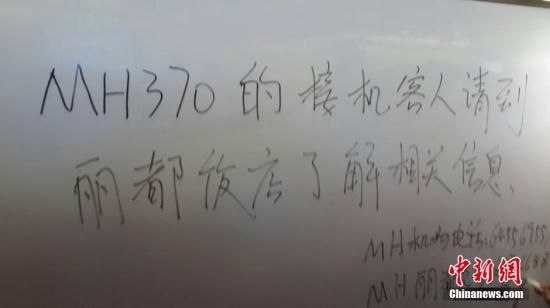 MH370的接机客人请到
丽都饭店了解相关信息
MH机场电话:64556955
MH丽
中新网
Chinanews.com